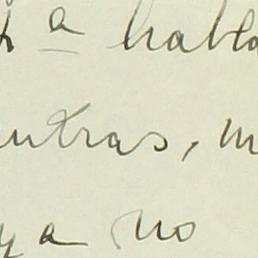 a habla
ntras, m
y a no